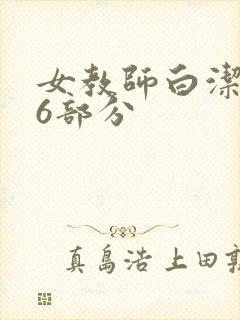 女教師白潔
6部分
真島浩 上田敦